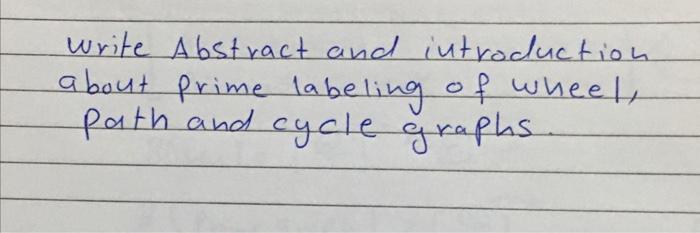 write Abstract and introduction
about prime labeling of wheel,
path and cycle graphs.